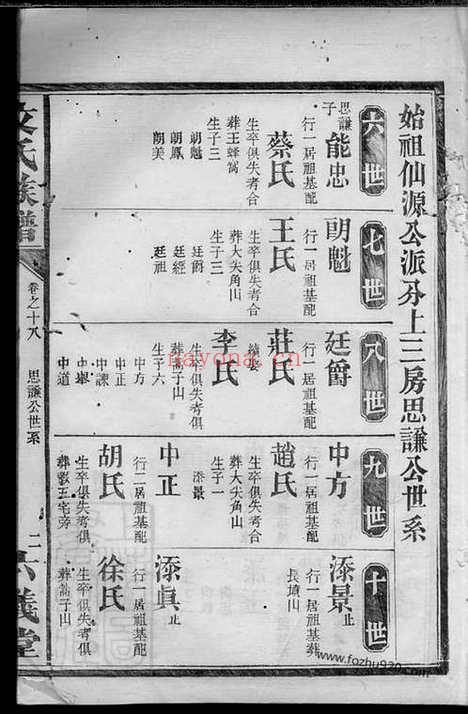 始祖仙源公派分上三房思謙公世系
六世
思謙子
能忠
行一居基配
蔡氏
生卒俱失考合
葬王蜂窩
生子三
朗魁
朗鳳
朗美
七世
朗魁
行一居基配
王氏
生卒俱失考合
葬大尖角山
生子三
廷爵
廷經
廷祖
八世
廷爵
行一居基配
莊氏
李氏
生卒俱失考俱
葬高子山
生子六
中方
中正
中諫
中道
九世
中方
行一居基配
趙氏
生卒俱失考合
葬大尖角山
生子一
添景
中正
行二居基配
胡氏
生卒俱失考俱
十世
添景止
行一居基葬
長墳山
添眞止
行一居基配
徐氏
生卒俱失考俱
葬高子山
氏族譜
卷之十八
思謙公世系
二
六義堂
nayona.cn
www.fozhu920.com